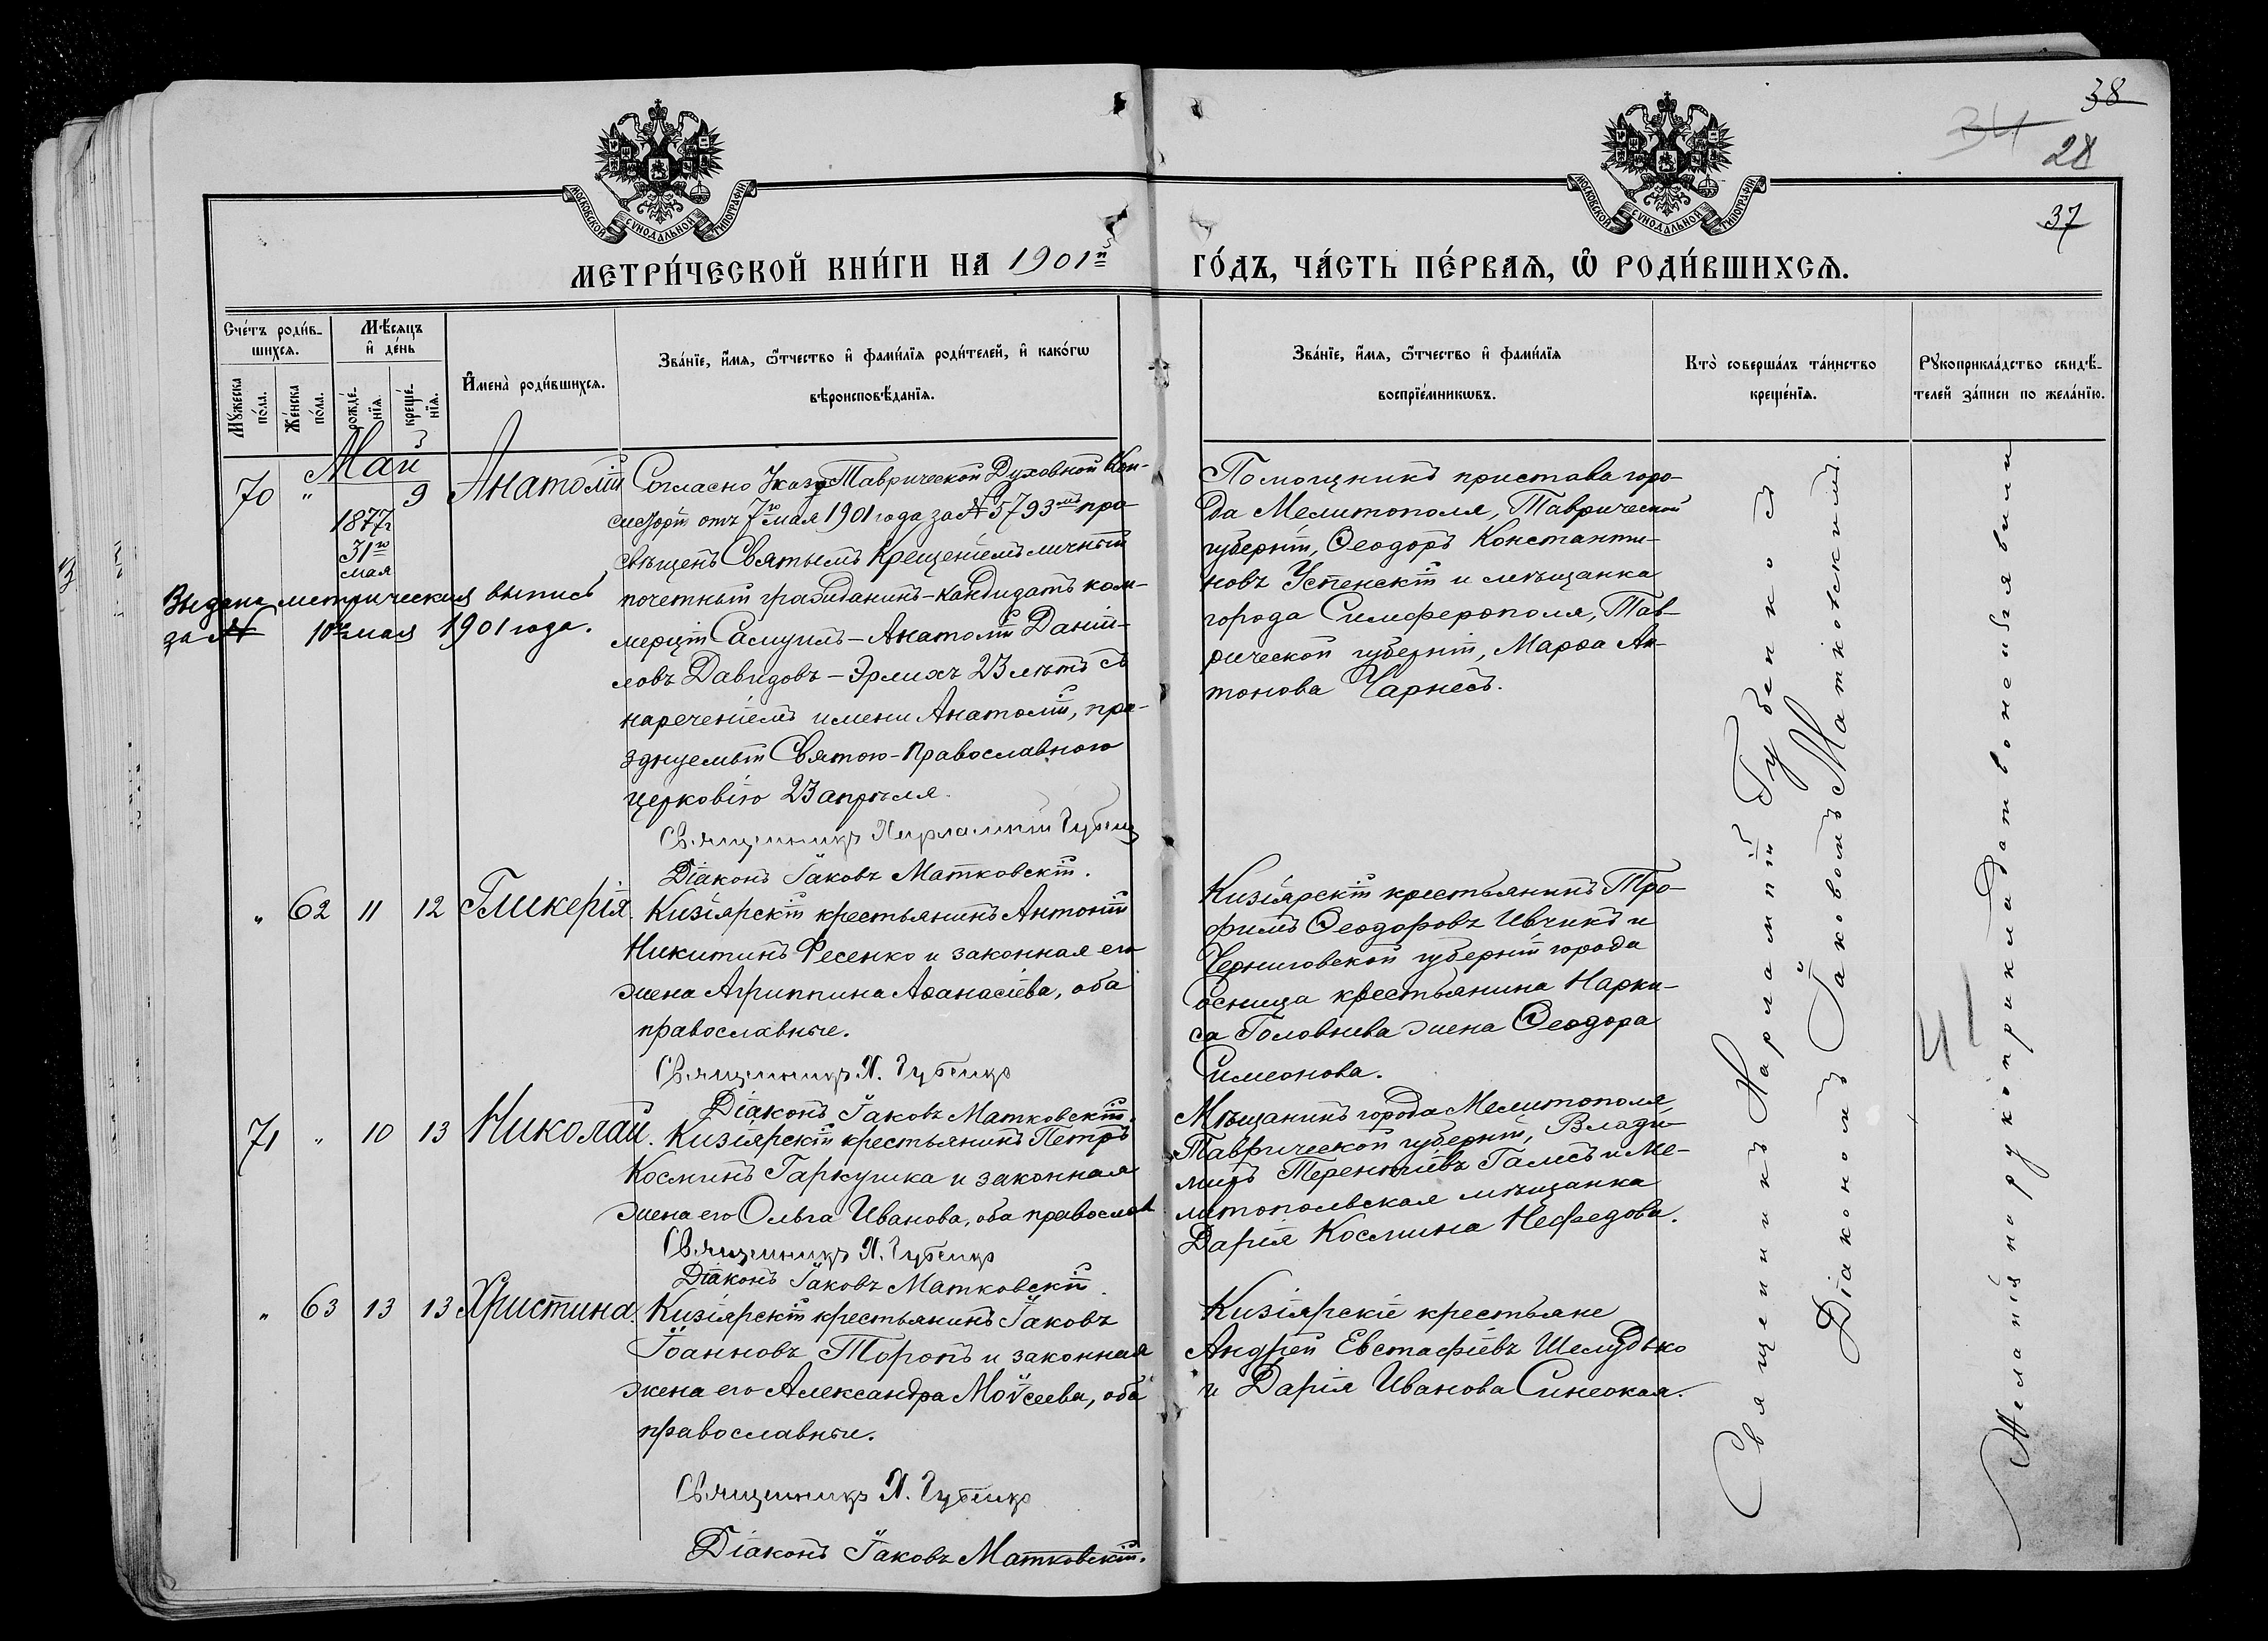 38
34
28
37
МОСКОВСКОЙ СѴНОДАЛЬНОЙ ТИПОГРАФІИ
МОСКОВСКОЙ СѴНОДАЛЬНОЙ ТИПОГРАФІИ
МЕТРИ́ЧЕСКОЙ КНИ́ГИ НА 1901й ГО́ДЪ, ЧА́СТЬ ПЕ́РВАѦ, Ѡ҆ РОДИ́ВШИХСѦ.
Сче́тъ роди́в-
шихсѧ.
Мꙋ́жеска по́ла.
Же́нска по́ла.
Мѣ́сѧцъ
и҆ де́нь
рожде́-
нїѧ.
креще́-
нїѧ.
И҆мена̀ роди́вшихсѧ.
Зва́нїе, и҆́мѧ, ѻ҆́тчество и҆ фами́лїѧ роди́телей, и҆ како́гѡ
вѣроисповѣ́данїѧ.
Зва́нїе, и҆́мѧ, ѻ҆́тчество и҆ фами́лїѧ
воспрїе́мникѡвъ.
Кто̀ соверша́лъ та́инство
креще́нїѧ.
Рꙋкоприкла́дство свидѣ́-
телей за́писи по жела́нїю.
Май
70 " 1877г 31го мая 9 Анатолій
Согласно Указу Таврической Духовной Кон-
систоріи отъ 7го мая 1901 года за № 5793мъ про-
свѣщенъ Святымъ Крещеніемъ личный
почетный гражданинъ-кандидатъ ком-
мерціи Самуилъ-Анатолій Даніи-
ловъ Давидовъ-Эрлихъ 23 лѣтъ съ
нареченіемъ имени Анатолій, пра-
зднуемый Святою-Православною
церковію 23 апрѣля.
Священникъ Харлампій Губенко
Діаконъ Іаковъ Матковскій.
Выдана метрическая выпись
за № 10го мая 1901 года.
Помощникъ пристава горо-
да Мелитополя, Таврической
губерніи, Ѳеодоръ Константи-
новъ Успенскій и мѣщанка
города Симферополя, Тав-
рической губерніи, Марѳа Ан-
тонова Чарнесъ.
" 62 11 12 Гликерія.
Кизіярскій крестьянинъ Антоній
Никитинъ Фесенко и законная его
жена Агриппина Аѳанасіева, оба
православные.
Священникъ Х. Губенко
Діаконъ Іаковъ Матковскій.
Кизіярскій крестьянинъ Тро-
фимъ Ѳеодоровъ Ивчикъ и
Черниговской губерніи города
крестьянина Нарки-
са Головнева жена Ѳеодора
Симеонова.
71 " 10 13 Николай.
Кизіярскій крестьянинъ Петръ
Косминъ Гаркушка и законная
жена его Ольга Иванова, оба православ
Священникъ Х. Губенко
Діаконъ Іаковъ Матковскій.
Мѣщанинъ города Мелитополя
Таврической губерніи, Влади-
миръ Терентіевъ Галисъ и Ме-
литопольская мѣщанка
Дарія Космина Нефедова.
" 63 13 13 Христина.
Кизіярскій крестьянинъ Іаковъ
Іоанновъ Торопъ и законная
жена его Александра Моѵсеева, оба
православные.
Священникъ Х. Губенко
Діаконъ Іаковъ Матковскій.
Кизіярскіе крестьяне
Андрей Евстафіевъ Шелудько
и Дарія Иванова Синеокая.
Священникъ Харлампій Губенко съ
Діакономъ Іаковомъ Матковскимъ.
Желанія на рукоприкладство не изъявили